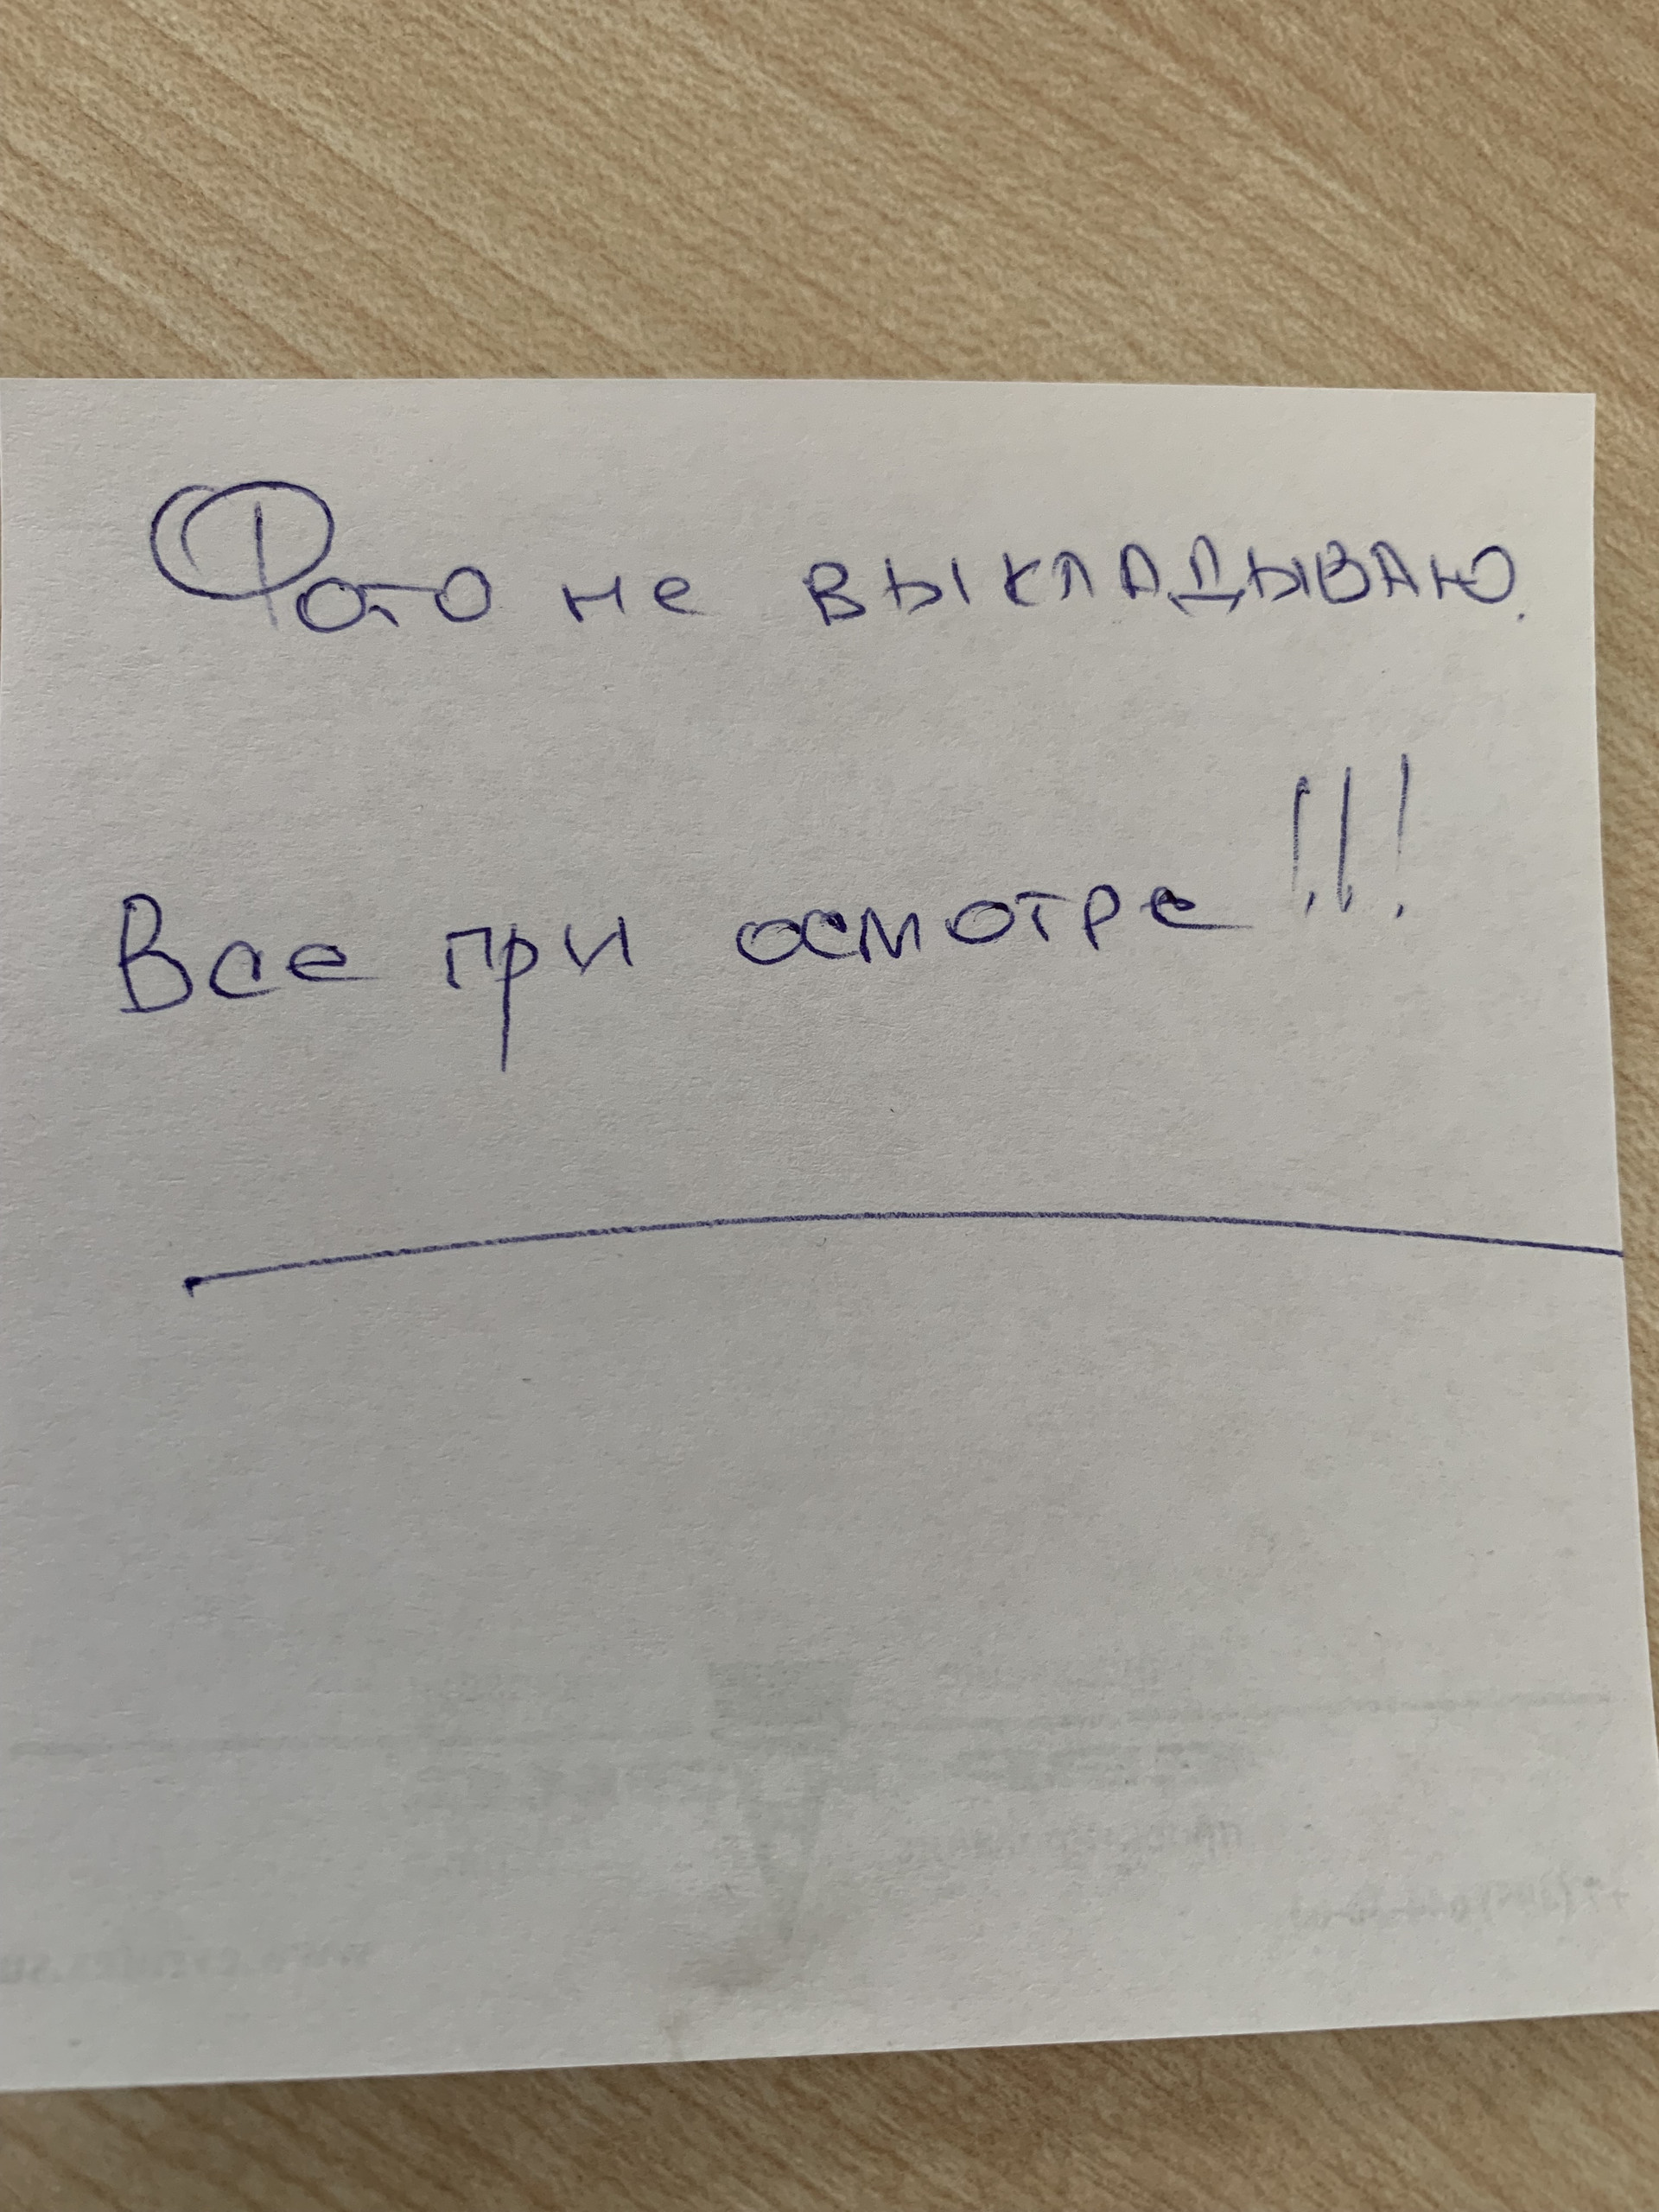 Фото не выкладываю.
Все при осмотре!!!